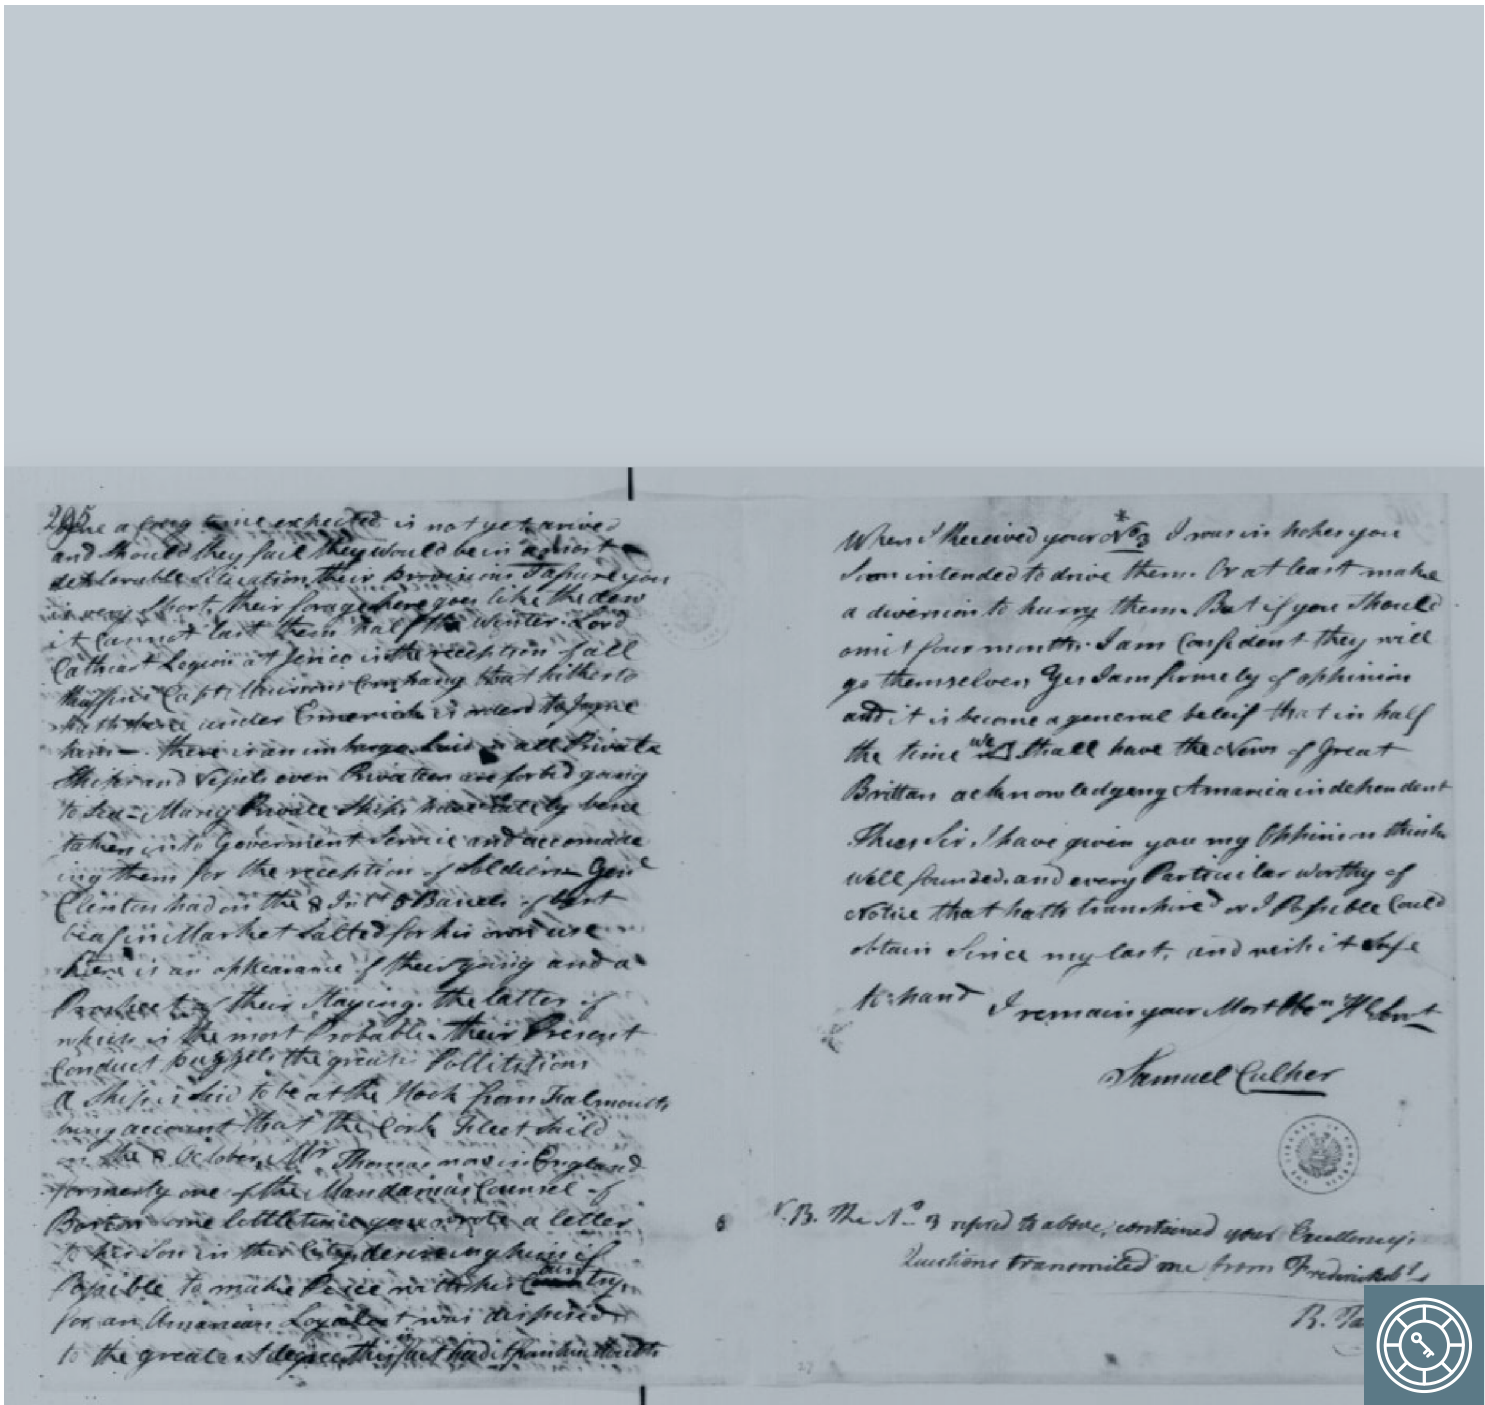 295
a long time expected is not yet arived
and should they fail they would be in a most
deplorable Situation, their provisions I assure you
is very Short, their forage here goes like the dew
it cannot last them half the Winter. Lord
Cathcart Legion at Jerico is the reception of all
Capt. Company that hitherto
hath been under Emerick is orderd to Joyne
him — there is an imbargo laid on all Private
Ships and Vessels even Privateers are forbid going
to Sea — Many Private Ships have lately bene
taken into Goverment Service and accomade
ing them for the reception of Soldiers — Genl
Clinton had on the 8 Inst 5 Barrels of best
beaf in Market Salted for his own use
there is an appearance of their going and a
Prospect of their Staying. the latter of
which is the most Probable. their Present
Conduct the greatis Pollititions
a Ship is Said to be at the Hook from Falmouth
bring account that the Cork Fleet Saild
on the 8 October. Mr Thomas now in England
formerly one of the Mandamus Counsel of
Boston some little time wrote a letter
to his Son in this City desireing him if
Possible to make Peice with his Country
for an American Loyalest was dispised
to the greatest degree, this fact had it from him
When I Received your No 3 I was in hopes you
Soon intended to drive them. Or at least make
a diversion to hurry them. But if you Should
omit four months. I am Confident they will
go themselves, Yes I am firmely of oppinion
and it is become a general beleif that in half
the time we Shall have the News of Great
Brittan acknowledgeng America independent
Thus Sir, I have given you my Oppinion think
well founded, and every Particular worthy of
Notice that hath transpired or I Possible Could
obtain Since my last, and wish it Safe
to hand I remain your Most Obe Hl Servt
Samuel Culper
N.B. The No 3 refired to above, contained your Excellency's
Questions transmitted me from Fredricksb
B. Ta